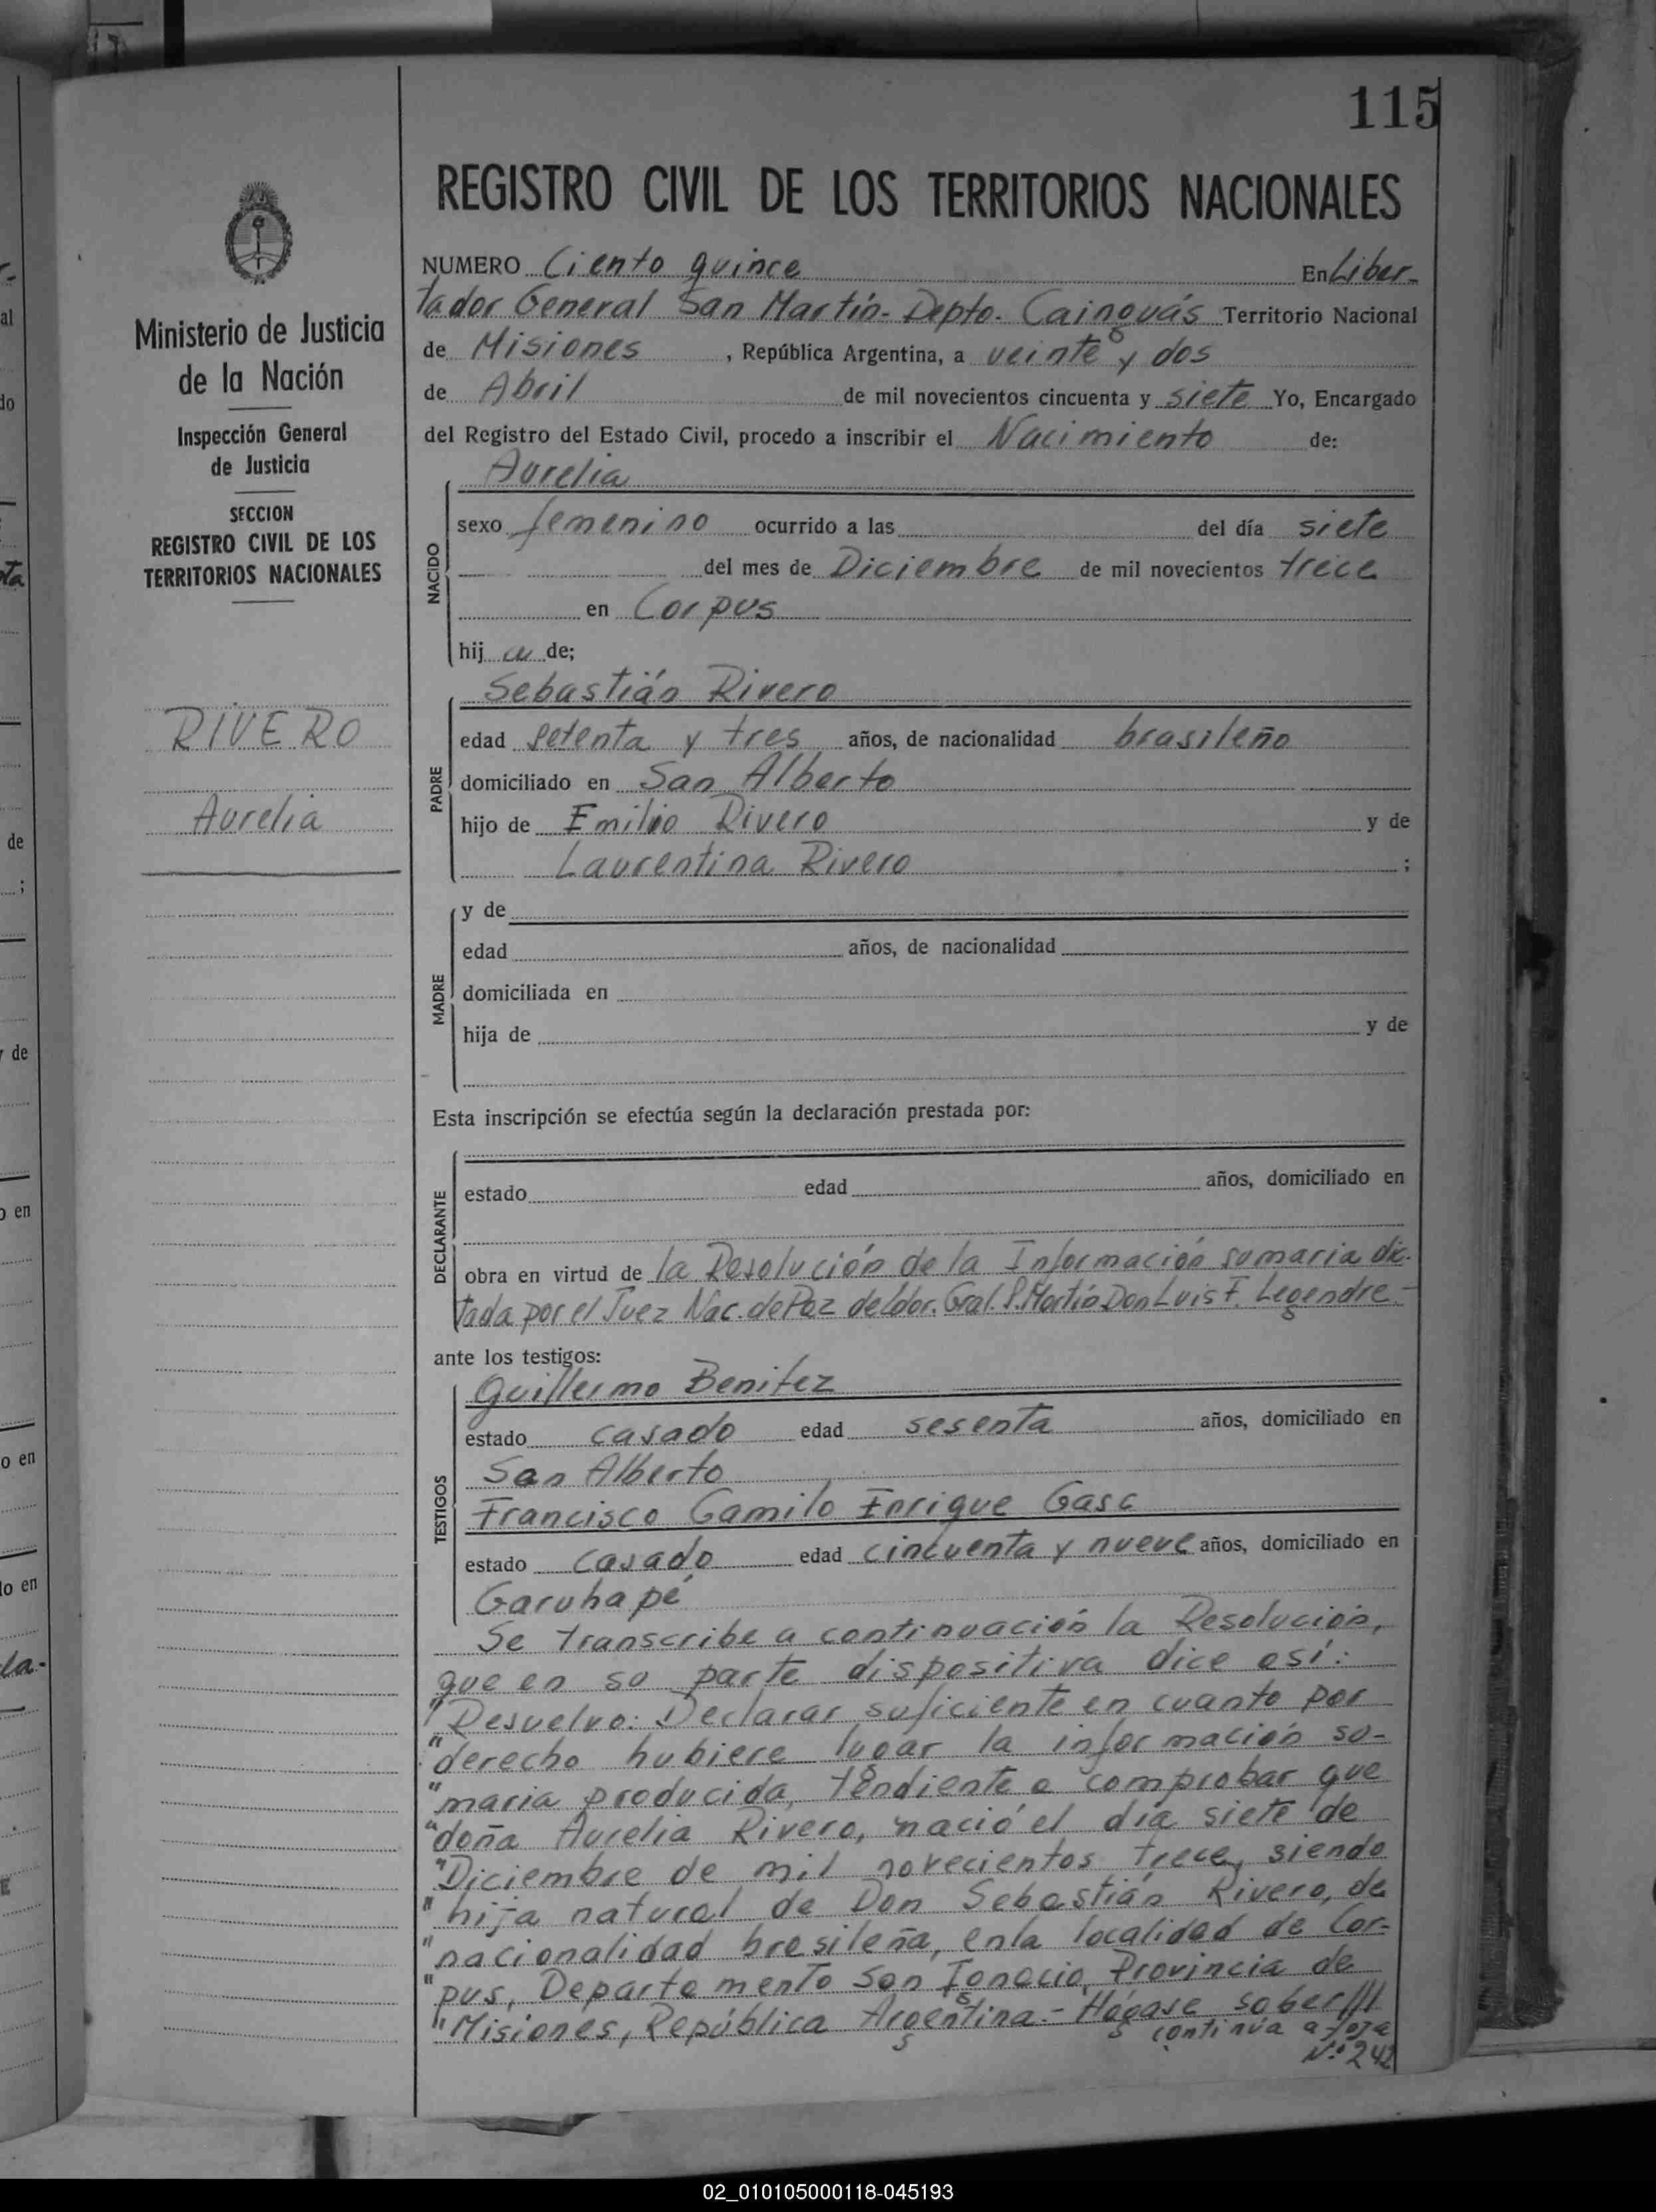 115
REGISTRO CIVIL DE LOS TERRITORIOS NACIONALES
Ministerio de Justicia
de la Nación
Inspección General
de Justicia
SECCION
REGISTRO CIVIL DE LOS
TERRITORIOS NACIONALES
RIVERO
Aurelia
NUMERO Ciento quince En Liber-
tador General San Martín - Depto. Cainguás Territorio Nacional
de Misiones, República Argentina, a veinte y dos
de Abril de mil novecientos cincuenta y siete Yo, Encargado
del Registro del Estado Civil, procedo a inscribir el Nacimiento de:
NACIDO
Aurelia
sexo femenino ocurrido a las del día siete
del mes de Diciembre de mil novecientos trece
en Corpus
hij a de;
PADRE
Sebastián Rivero
edad setenta y tres años, de nacionalidad brasileño
domiciliado en San Alberto
hijo de Emilio Rivero y de
Laurentina Rivero ;
MADRE
y de
edad años, de nacionalidad
domiciliada en
hija de y de
Esta inscripción se efectúa según la declaración prestada por:
DECLARANTE
estado edad años, domiciliado en
obra en virtud de la Resolución de la Información sumaria dic-
tada por el Juez Nac. de Paz de Ldor. Gral. S. Martín Don Luis F. Legendre.-
ante los testigos:
TESTIGOS
Guillermo Benitez
estado casado edad sesenta años, domiciliado en
San Alberto
Francisco Camilo Enrique Gasc
estado casado edad cincuenta y nueve años, domiciliado en
Garuhapé
Se transcribe a continuación la Resolución,
que en su parte dispositiva dice así:
"Resuelvo: Declarar suficiente en cuanto por
"derecho hubiere lugar la información su-
"maria producida, tendiente a comprobar que
"doña Aurelia Rivero, nació el día siete de
"Diciembre de mil novecientos trece, siendo
"hija natural de Don Sebastián Rivero, de
"nacionalidad brasileña, en la localidad de Cor-
"pus, Departamento San Ignacio, Provincia de
"Misiones, República Argentina.- Hágase saber///
continúa a foja
N.º 242
02_010105000118-045193